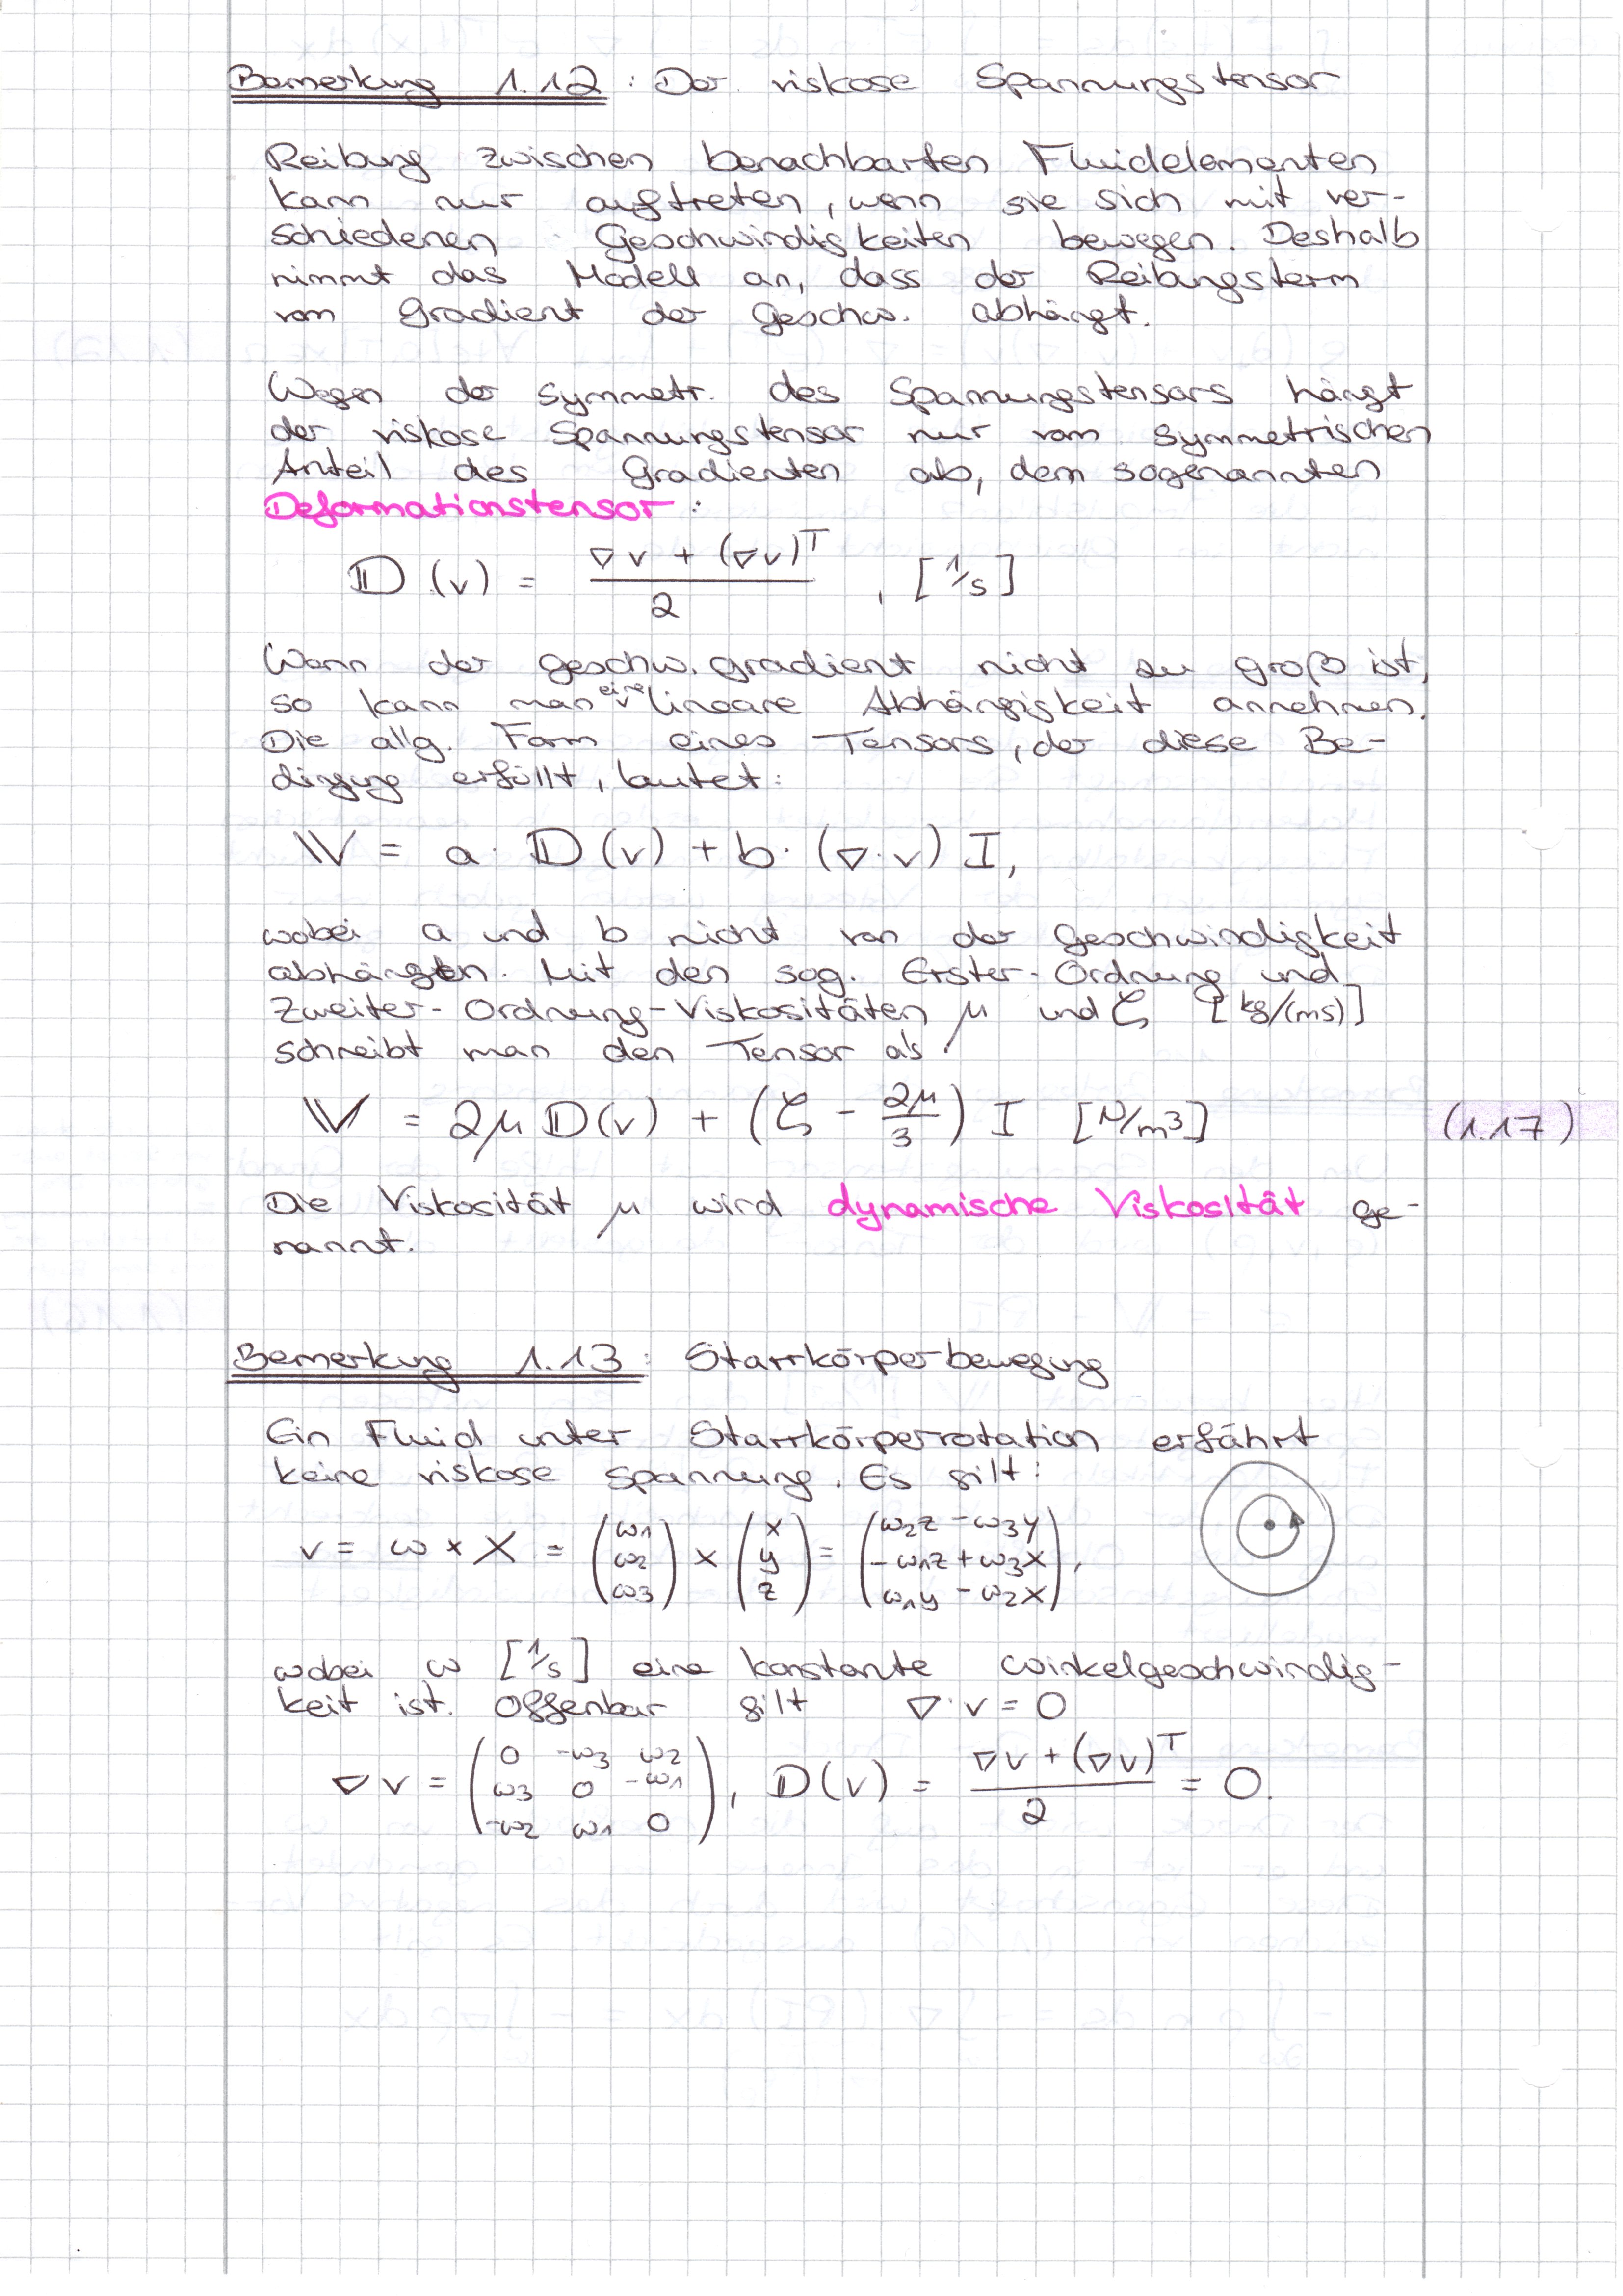 Bemerkung 1.12: Der viskose Spannungstensor
Reibung zwischen benachbarten Fluidelementen
kann nur auftreten, wenn sie sich mit ver-
schiedenen Geschwindigkeiten bewegen. Deshalb
nimmt das Modell an, dass der Reibungsterm
vom Gradient der Geschw. abhängt.
Wegen der Symmetr. des Spannungstensors hängt
der viskose Spannungstensor nur vom symmetrischen
Anteil des Gradienten ab, dem sogenannten
Deformationstensor:
𝔻(v) = (∇v + (∇v)^T) / 2 , [1/s]
Wenn der Geschw.gradient nicht zu groß ist,
so kann man eine lineare Abhängigkeit annehmen.
Die allg. Form eines Tensors, der diese Be-
dingung erfüllt, lautet:
𝕍 = a · 𝔻(v) + b · (∇·v) I,
wobei a und b nicht von der Geschwindigkeit
abhängen. Mit den sog. Erster-Ordnung und
Zweiter-Ordnung-Viskositäten μ und ζ [kg/(ms)]
schreibt man den Tensor als
𝕍 = 2μ 𝔻(v) + (ζ - 2μ/3) I [N/m³] (1.17)
Die Viskosität μ wird dynamische Viskosität ge-
nannt.
Bemerkung 1.13: Starrkörperbewegung
Ein Fluid unter Starrkörperrotation erfährt
keine viskose Spannung. Es gilt:
v = ω × X = (ω1 ω2 ω3) × (x y z) = (ω2z - ω3y, -ω1z + ω3x, ω1y - ω2x),
wobei ω [1/s] eine konstante Winkelgeschwindig-
keit ist. Offenbar gilt ∇·v = 0
∇v = (0 -ω3 ω2, ω3 0 -ω1, -ω2 ω1 0), 𝔻(v) = (∇v + (∇v)^T) / 2 = 0.